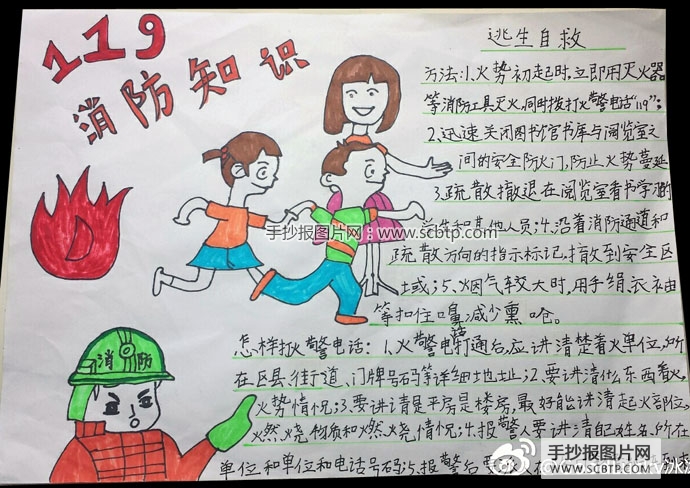 119
消防知识
逃生自救
方法:1.火势初起时,立即用灭火器
等消防工具灭火,同时拨打火警电话"119";
2.迅速关闭图书馆书库与阅览室之
间的安全防火门,防止火势蔓延
3.疏散撤退在阅览室看书学习的
学生和其他人员;4.沿着消防通道和
疏散方向的指示标记,撤到安全区
域;5.烟气较大时,用手绢、衣袖
等扣住口鼻减少熏呛。
手抄报图片网
www.scbtp.com
消防
怎样打火警电话:1.火警电话打通后,应讲清楚着火单位,所
在区县、街行道、门牌号码等详细地址;2.要讲清什么东西着火,
火势情况;3.要讲清是平房是楼房,最好能讲清起火部位,
燃烧物质和燃烧情况;4.报警人要讲清自己姓名、所在
单位和单位和电话号码;5.报警后要派人在
手抄报图片网
WWW.SCBTP.COM